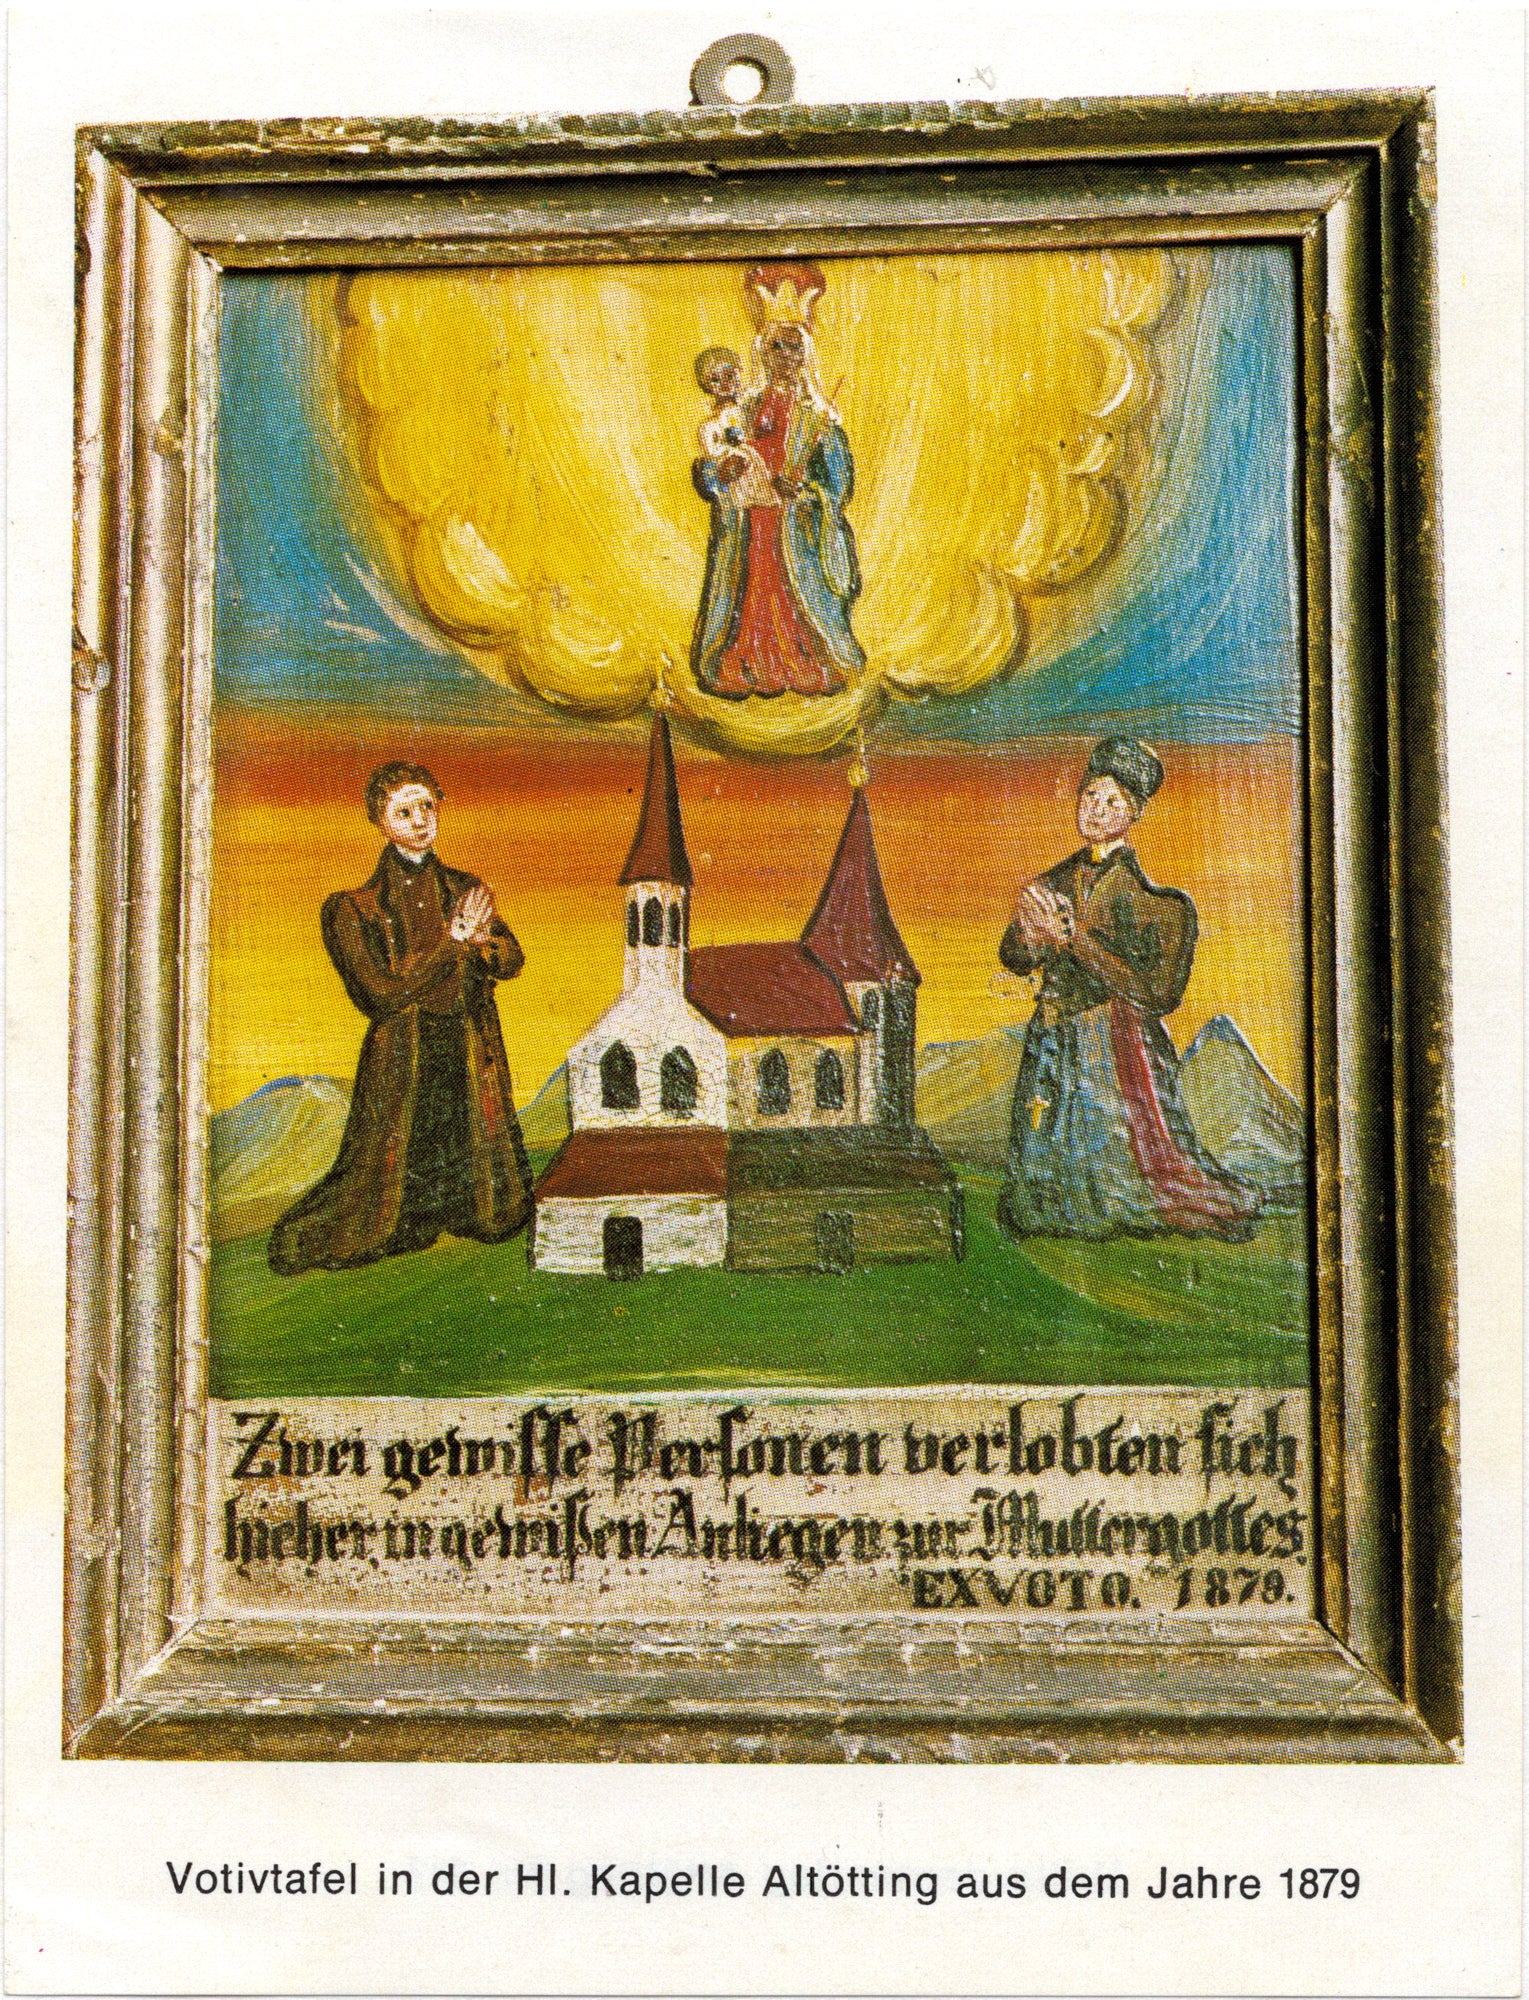 Zwei gewisse Personen verlobten sich
hieher, in gewißen Anliegen zur Muttergottes.
EX VOTO. 1879.
Votivtafel in der Hl. Kapelle Altötting aus dem Jahre 1879